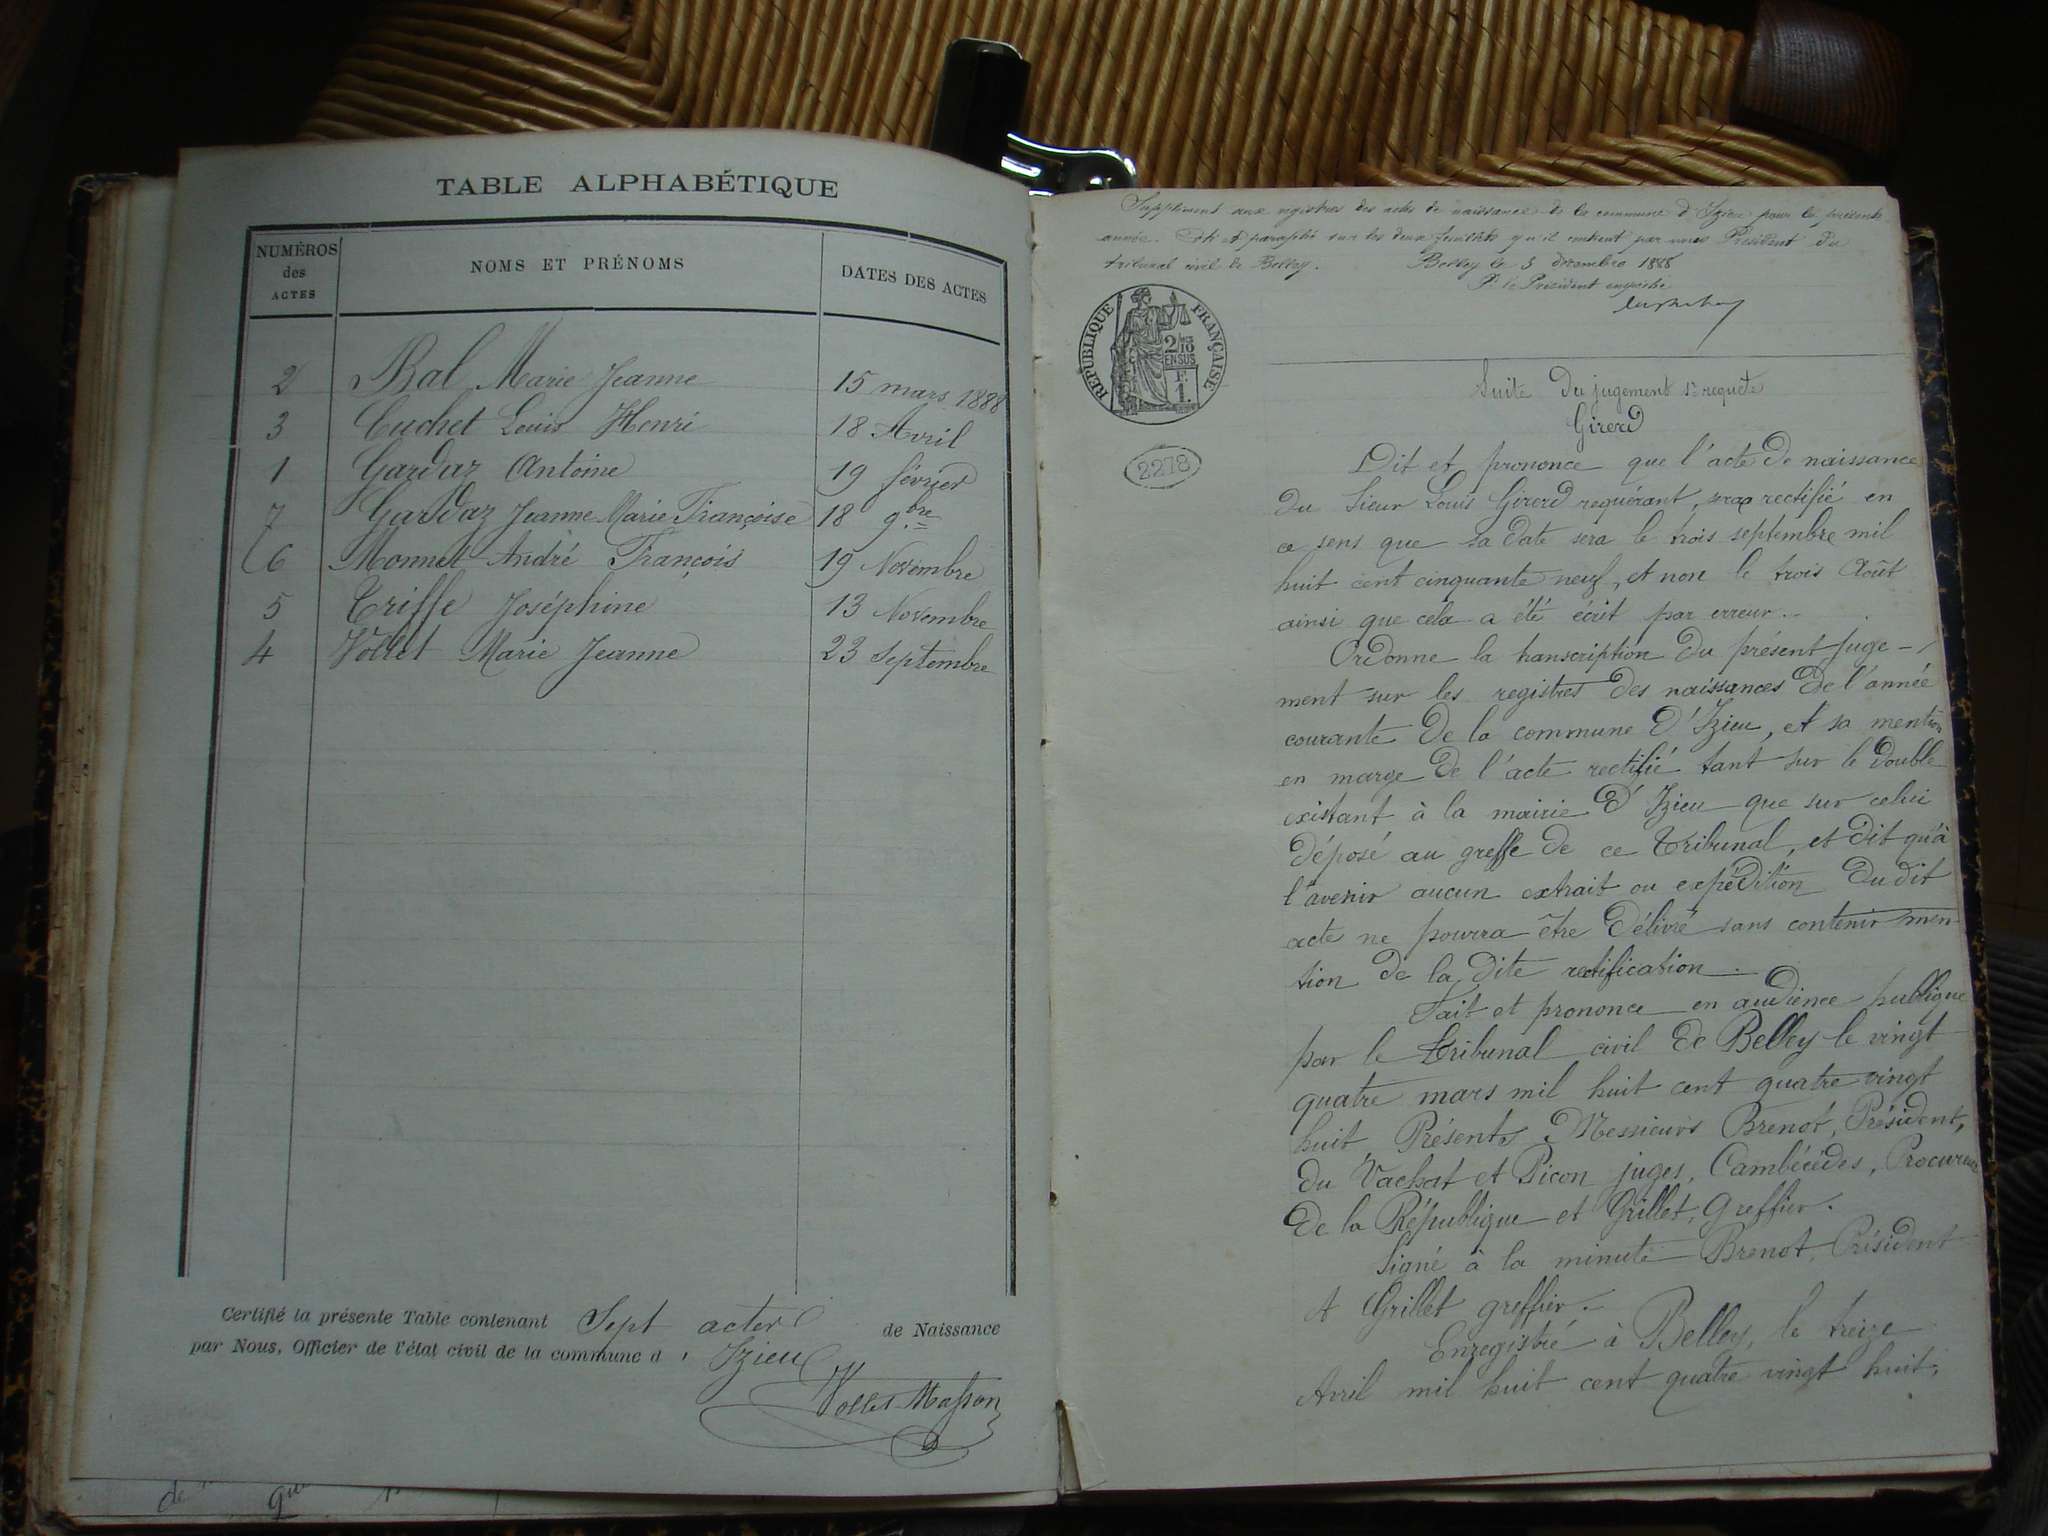 TABLE ALPHABÉTIQUE
NUMÉROS des ACTES
NOMS ET PRÉNOMS
DATES DES ACTES
2 Bal Marie Jeanne 15 mars 1888
3 Cuchet Louis Henri 18 Avril
1 Gardaz Antoine 19 février
7 Gardaz Jeanne Marie Françoise 18 9bre
6 Monnet André François 19 Novembre
5 Triffe Joséphine 13 Novembre
4 Vollet Marie Jeanne 23 Septembre
Certifié la présente Table contenant Sept actes de Naissance
par Nous, Officier de l'état civil de la commune d' Izieu
Vollet Masson
Supplément aux registres des actes de naissance de la commune d'Izieu pour la présente
année. Coté et paraphé sur les deux feuillets qu'il contient par nous Président du
tribunal civil de Belley. Belley le 3 décembre 1888
Pr le Président empêché
RÉPUBLIQUE FRANÇAISE
2/10 EN SUS
F. 1.
2278
Suite du jugement sr requête
Girerd
Dit et prononce que l'acte de naissance
du Sieur Louis Girerd requérant, sera rectifié en
ce sens que sa date sera le trois septembre mil
huit cent cinquante neuf, et non le trois Août
ainsi que cela a été écrit par erreur.
Ordonne la transcription du présent juge-
ment sur les registres des naissances de l'année
courante de la commune d'Izieu, et sa mention
en marge de l'acte rectifié tant sur le double
existant à la mairie d'Izieu que sur celui
déposé au greffe de ce Tribunal, et dit qu'à
l'avenir aucun extrait ou expédition du dit
acte ne pourra être délivré sans contenir men
tion de la dite rectification.
Fait et prononcé en audience publique
par le Tribunal civil de Belley le vingt
quatre mars mil huit cent quatre vingt
huit, Présents Messieurs Brenot, Président,
du Vachat et Picon juges, Cambécédes, Procureur
de la République et Grillet, greffier.
Signé à la minute Brenot, Président
et Grillet greffier.
Enregistré à Belley, le treize
Avril mil huit cent quatre vingt huit,